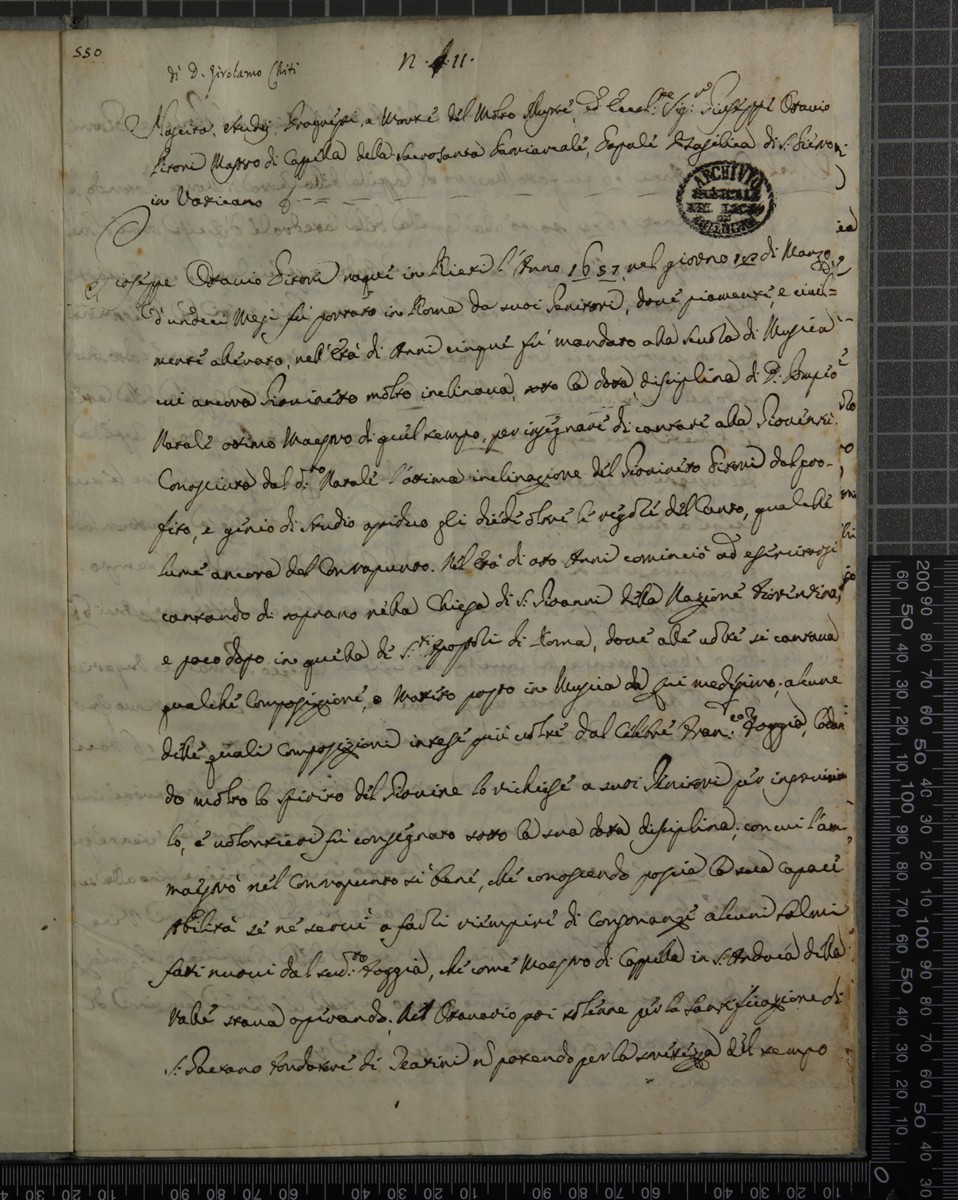 550
di D. Girolamo Chiti
n. 11.
Nascita, studij, Progressi, e Morte del Molto Illustre, ed Eccel.mo Sig.re Giuseppe Ottavio
Pitoni Mastro di Cappella della Sacrosanta Patriarcale, Papale Basilica di S. Pietro
in Vaticano
ARCHIVIO
MUSICALE
Gioseppe Ottavio Pitoni naque in Rieti l'Anno 1657, nel giorno 18 di Marzo,
d'undeci Mesi fù portato in Roma da suoi Genitori, dove piamente, e civil=
mente allevato, nell'Età di Anni cinque fù mandato alla Scuola di Musica
cui ancora Giovinetto molto inclinava, sotto la dotta disciplina di D. Pompeo
Natale ottimo Maestro di quel tempo, per insegnare di cantare alla Gioventù.
Conosciuta dal d.to Natale l'ottima inclinazione del Giovinetto Pitoni dal pro-
fitto, e genio di studio assiduo gli diede oltre le regole del Canto, qualche
lume ancora del Contrapunto. Nell'Età di otto Anni cominciò ad esercitarsi
cantando di soprano nella Chiesa di S. Giovanni della Nazione Fiorentina,
e poco dopo in quella de S.ti Apostoli di Roma, dove alle volte si cantava
qualche Composizione, o Mottetto posto in Musica da lui medesimo; alcune
delle quali Composizioni intese più volte dal Celebre Fran.co Foggia, lodan
do molto lo spirito del Giovine lo richiese a suoi Genitori per instruir
lo, e volontieri fù consegnato sotto la sua dotta disciplina; con cui l'am
maestrò nel Contrapunto sì bene, che conoscendo poscia la sua capace
Abilità se ne servì a farli riempire di Consonanze alcuni Salmi
fatti nuovi dal sud.to Foggia, che come Maestro di Cappella in S. Andrea della
Valle stava operando, Nell'Ottavario poi solenne per la Santificazione di
S. Gaetano Fondatore di Teatini nõ potendo per la strettezza del tempo